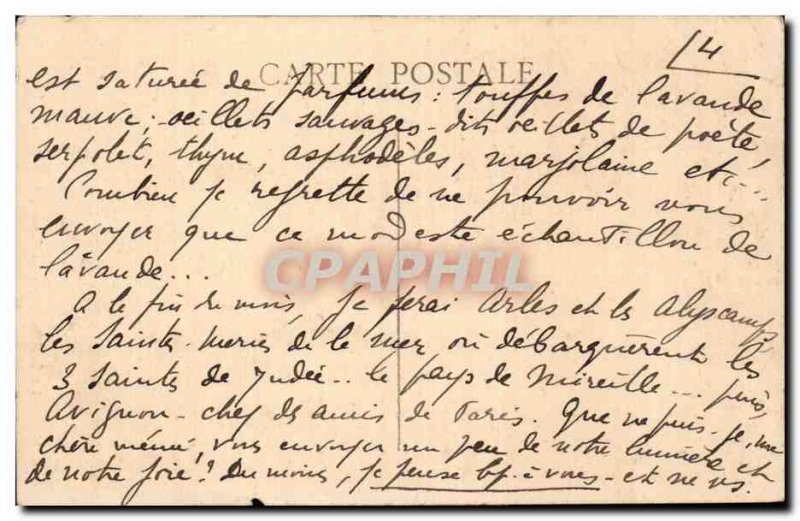 14
CARTE POSTALE
est saturée de parfums : touffes de lavande
mauve ; oeillets sauvages - dits oeillets de poète,
serpolet, thym, asphodèles, marjolaine etc...
Combien je regrette de ne pouvoir vous
envoyer que ce modeste échantillon de
lavande...
CPAPHIL
A la fin du mois, je ferai Arles et les Alyscamps
les Saintes-Maries de la mer où débarquèrent les
3 Saintes de Judée.. le pays de Mireille... puis,
Avignon - chez des amis de Paris. Que ne puis-je, ma
chère mémé, vous envoyer un peu de notre lumière et
de notre joie ? Du moins, je pense bp. à vous - et ne vs.